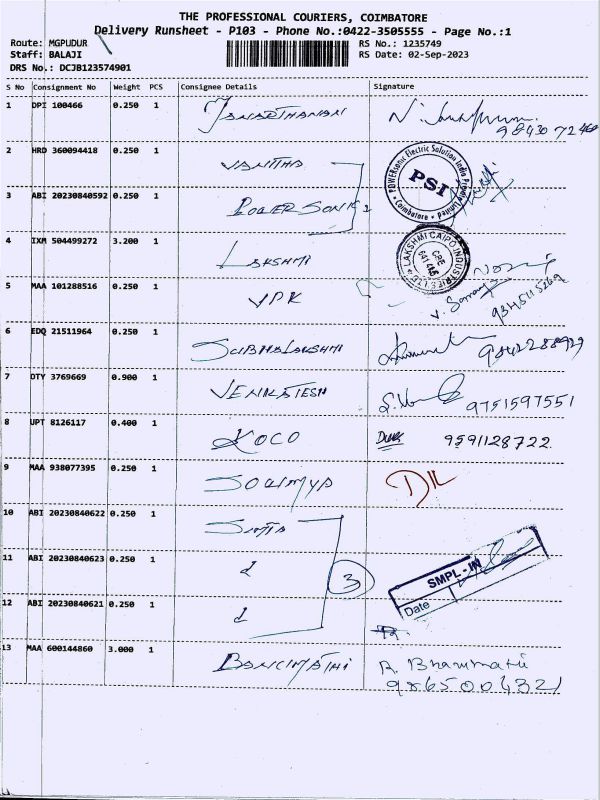 THE PROFESSIONAL COURIERS, COIMBATORE
Delivery Runsheet - P103 - Phone No.:0422-3505555 - Page No.:1
Route: MGPUDUR RS No.: 1235749
Staff: BALAJI RS Date: 02-Sep-2023
DRS No.: DCJB123574901
S No Consignment No Weight PCS Consignee Details Signature
1 DPI 100466 0.250 1 JANARTHANAN
2 HRD 360094418 0.250 1 VANITHA
POWERsonic Electric Solution India Private Limited
PSI
Coimbatore
3 ABI 20230840592 0.250 1 POWER SONIC 2
4 IXM 504499272 3.200 1 LAKSHMI
LAKSHMI CAIPO INDUSTRIES LTD
CPE
5 MAA 101288516 0.250 1 VPK
6 EDQ 21511964 0.250 1 SUBHALAKSHMI
7 OTY 3769669 0.900 1 VENKATESH 9751597551
8 UPT 8126117 0.400 1 KOCO 9591128722
9 MAA 938077395 0.250 1 SOUIMYA
10 ABI 20230840622 0.250 1
11 ABI 20230840623 0.250 1 3
SMPL - IN
12 ABI 20230840621 0.250 1
Date
13 MAA 600144860 3.000 1 R. Bhanumathi
9865004321